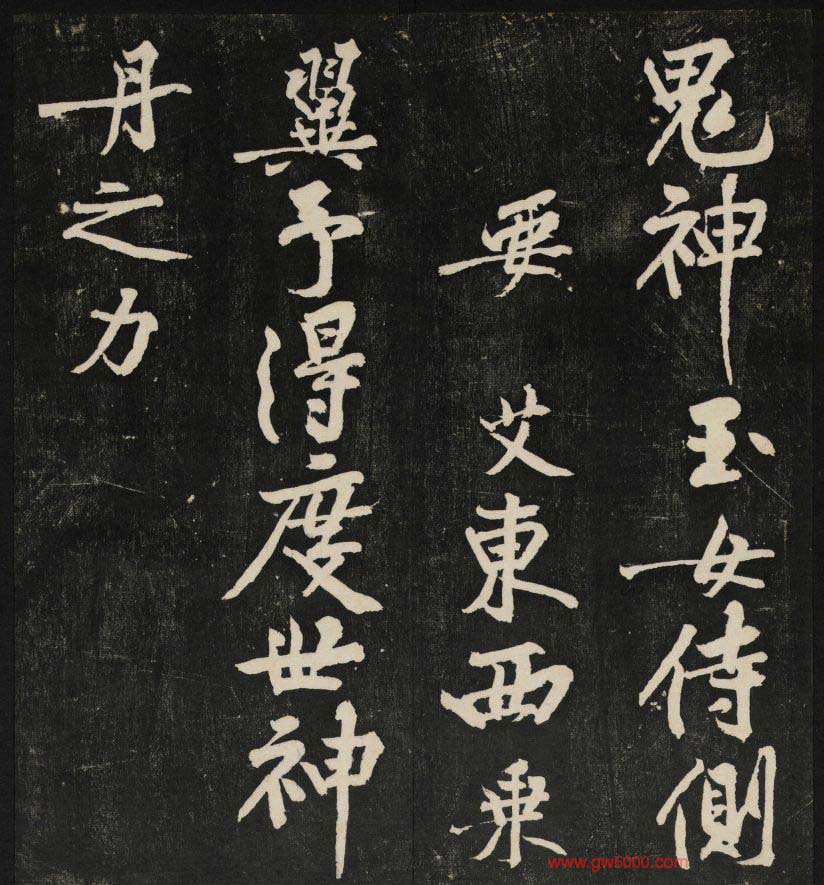 鬼神玉女侍側
要艾東西乗
翼予得度世神
丹之力
www.gw5000.com